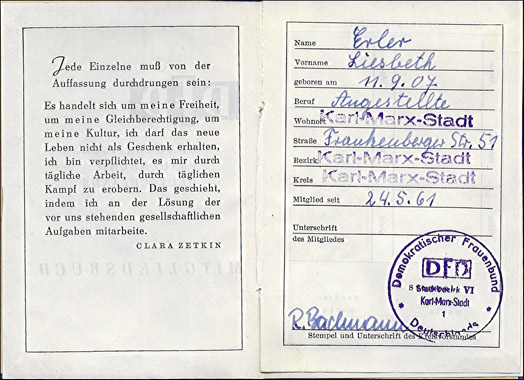 Jede Einzelne muß von der
Auffassung durchdrungen sein:
Es handelt sich um meine Freiheit,
um meine Gleichberechtigung, um
meine Kultur, ich darf das neue
Leben nicht als Geschenk erhalten,
ich bin verpflichtet, es mir durch
tägliche Arbeit, durch täglichen
Kampf zu erobern. Das geschieht,
indem ich an der Lösung der
vor uns stehenden gesellschaftlichen
Aufgaben mitarbeite.
CLARA ZETKIN
Name Erler
Vorname Liesbeth
geboren am 11.9.07
Beruf Angestellte
Wohnort Karl-Marx-Stadt
Straße Frankenberger Str. 51
Bezirk Karl-Marx-Stadt
Kreis Karl-Marx-Stadt
Mitglied seit 24.5.61
Unterschrift
des Mitgliedes
Demokratischer Frauenbund
DFD
Stadtbezirk VI
Karl-Marx-Stadt
1
Deutschlands
R. Bachmann
Stempel und Unterschrift des Kreisvorstandes